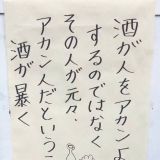 酒が人をアカンよ
するのではなく
その人が元々、
アカン人だというこ
酒が暴く